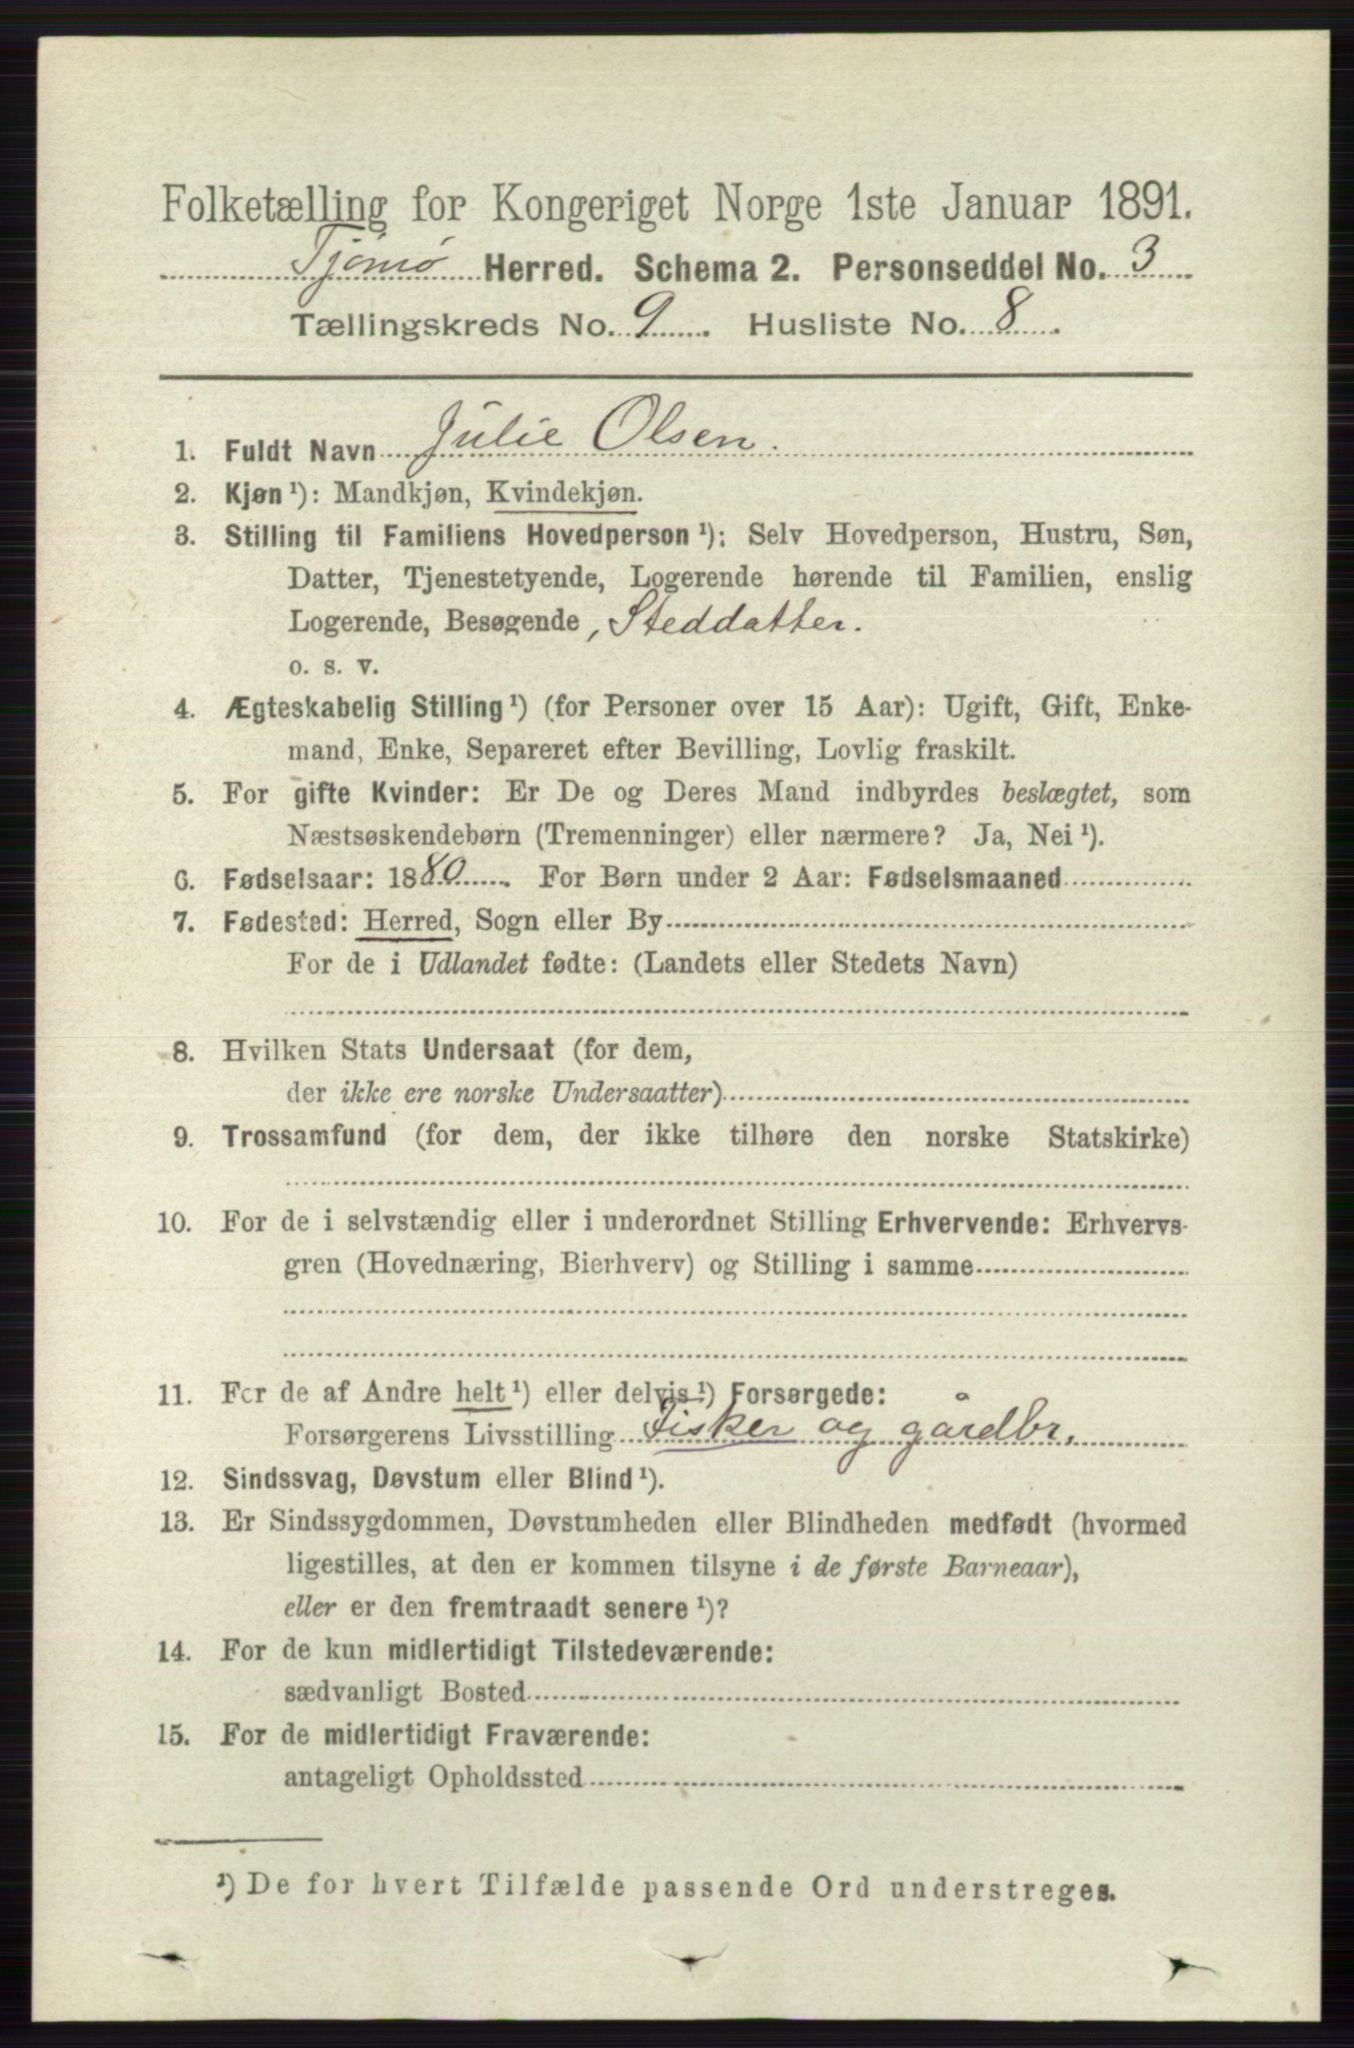 Folketælling for Kongeriget Norge 1ste Januar 1891.
Tjømø Herred. Schema 2. Personseddel No. 3
Tællingskreds No. 9. Husliste No. 8.
1. Fuldt Navn Julie Olsen.
2. Kjøn ¹): Mandkjøn, Kvindekjøn.
3. Stilling til Familiens Hovedperson ¹): Selv Hovedperson, Hustru, Søn,
Datter, Tjenestetyende, Logerende hørende til Familien, enslig
Logerende, Besøgende, Steddatter.
o. s. v.
4. Ægteskabelig Stilling ¹) (for Personer over 15 Aar): Ugift, Gift, Enke-
mand, Enke, Separeret efter Bevilling, Lovlig fraskilt.
5. For gifte Kvinder: Er De og Deres Mand indbyrdes beslægtet, som
Næstsøskendebørn (Tremenninger) eller nærmere? Ja, Nei ¹).
6. Fødselsaar: 1880. For Børn under 2 Aar: Fødselsmaaned
7. Fødested: Herred, Sogn eller By
For de i Udlandet fødte: (Landets eller Stedets Navn)
8. Hvilken Stats Undersaat (for dem,
der ikke ere norske Undersaatter)
9. Trossamfund (for dem, der ikke tilhøre den norske Statskirke)
10. For de i selvstændig eller i underordnet Stilling Erhvervende: Erhvervs-
gren (Hovednæring, Bierhverv) og Stilling i samme
11. For de af Andre helt ¹) eller delvis ¹) Forsørgede:
Forsørgerens Livsstilling Fisker og gårdbr,
12. Sindssvag, Døvstum eller Blind ¹).
13. Er Sindssygdommen, Døvstumheden eller Blindheden medfødt (hvormed
ligestilles, at den er kommen tilsyne i de første Barneaar),
eller er den fremtraadt senere ¹)?
14. For de kun midlertidigt Tilstedeværende:
sædvanligt Bosted
15. For de midlertidigt Fraværende:
antageligt Opholdssted
¹) De for hvert Tilfælde passende Ord understreges.